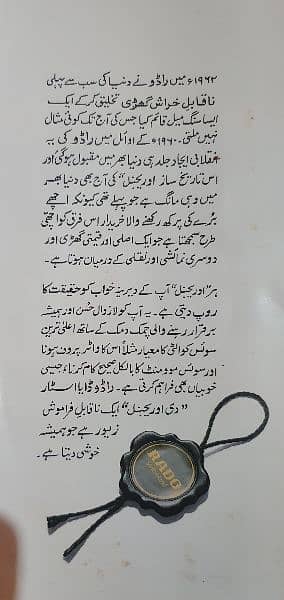 ۱۹۶۲ء میں راڈو نے دنیا کی سب سے پہلی
ناقابلِ خراش گھڑی تخلیق کر کے ایک
ایسا سنگ میل قائم کیا جس کی آج تک کوئی مثال
نہیں ملتی۔ ۱۹۶۰ء کے اوائل میں راڈو کی یہ
انقلابی ایجاد جلد ہی دنیا بھر میں مقبول ہو گئی اور
اس تاریخ ساز "اوریجنل" کی آج بھی دنیا بھر
میں وہی مانگ ہے جو پہلے تھی کیونکہ اچھے
بُرے کی پرکھ رکھنے والا خریدار اس فرق کو اچھی
طرح سمجھتا ہے جو ایک اصلی اور قیمتی گھڑی اور
دوسری نمائشی اور نقلی کے درمیان ہوتا ہے۔
ہر "اوریجنل" آپ کے دیرینہ خواب کو حقیقت کا
روپ دیتی ہے۔ یہ آپ کو لازوال حُسن اور ہمیشہ
برقرار رہنے والی چمک دمک کے ساتھ اعلیٰ ترین
سوئس کوالٹی کا معیار مثلاً اس کا واٹر پروف ہونا
اور سوئس موومنٹ کا بالکل صحیح کام کرنا، جیسی
خوبیاں بھی فراہم کرتی ہے۔ راڈو ڈایا اسٹار
"دی اوریجنل" ایک ناقابلِ فراموش
زیور ہے جو ہمیشہ
خوشی دیتا ہے۔
RADO